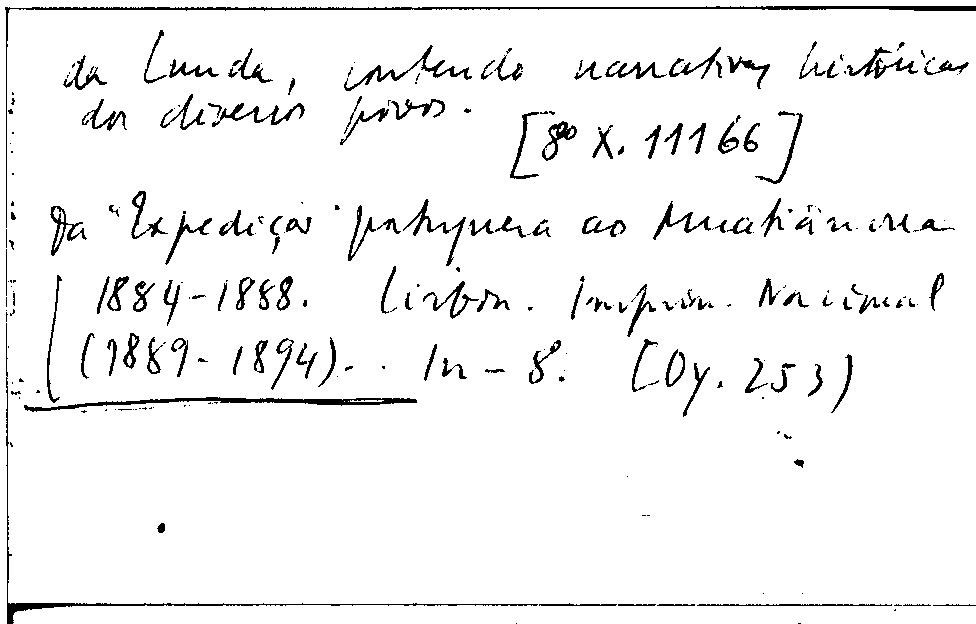 da Lunda, contendo narrativas históricas
dos diversos povos.
[8º X. 11166]
Da "Expedição" portuguesa ao Muatiânvua
1884-1888. Lisbon. Imprim. Nacional
(1889-1894). . In-8º. [Oy. 253)